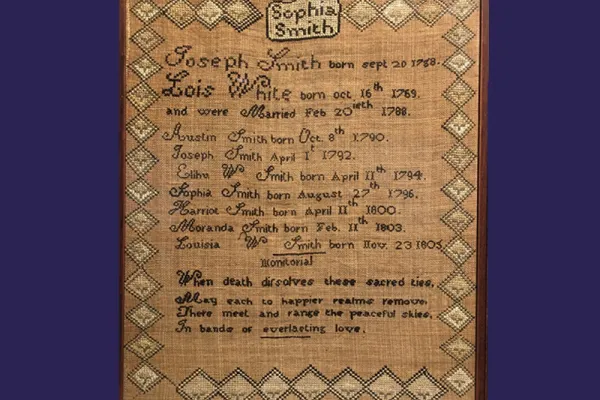 Sophia
Smith
Joseph Smith born sept 20 1768.
Lois White born oct 16th 1769.
and were Married Feb 20ieth 1788.
Austin Smith born Oct. 8th 1790.
Joseph Smith April 1t 1792.
Elihu W Smith born April 11th 1794.
Sophia Smith born August 27th 1796.
Harriot Smith born April 11th 1800.
Moranda Smith born Feb. 11th 1803.
Louisia W Smith born Nov. 23 1805
Monitorial
When death dissolves these sacred ties,
May each to happier realms remove.
There meet and range the peaceful skies,
In bands of everlasting love.